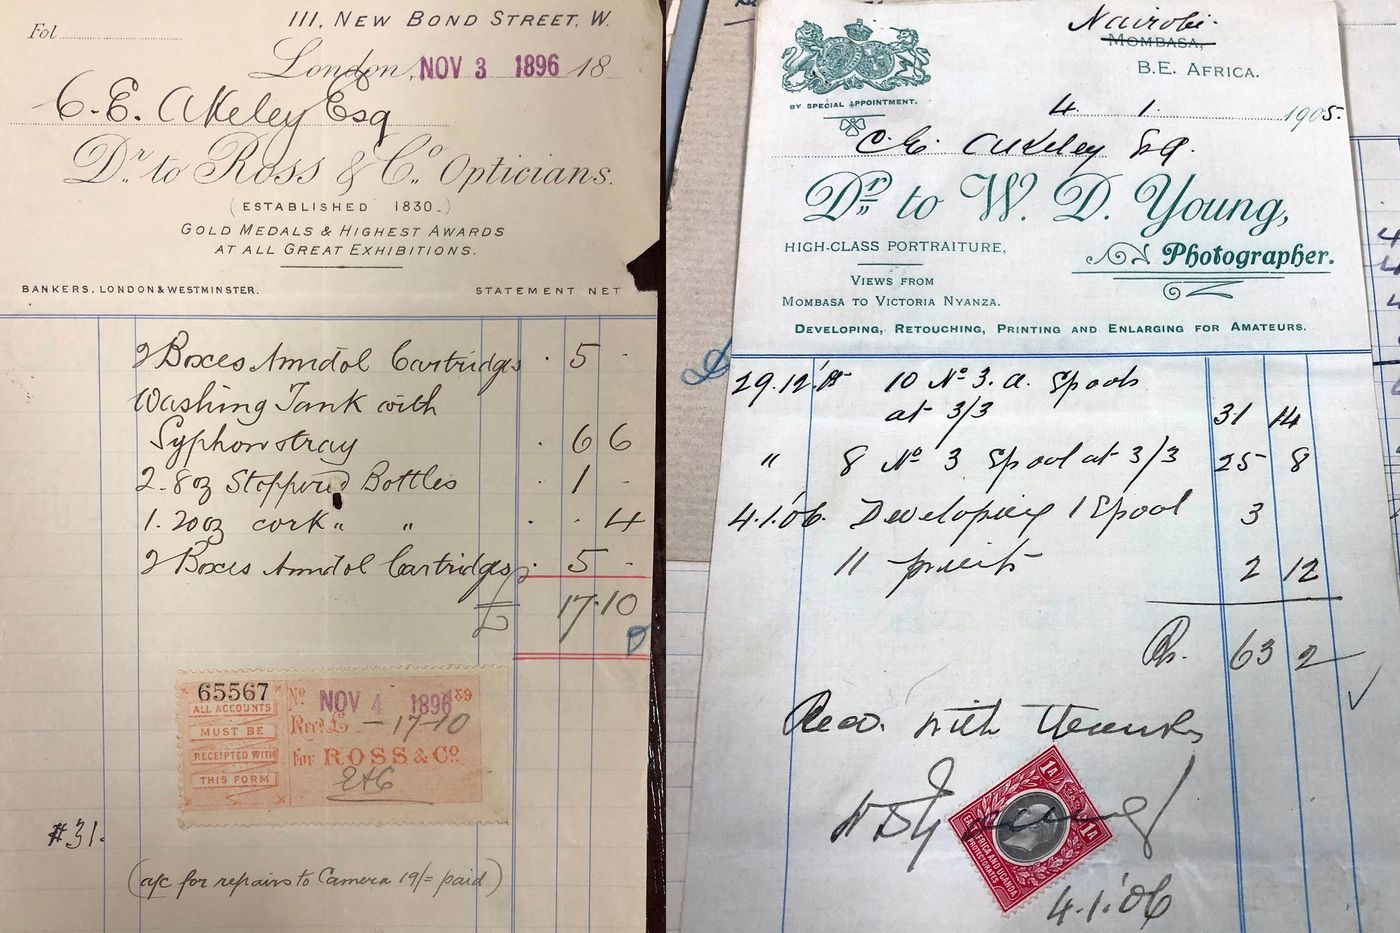 Fol
111, NEW BOND STREET, W.
London, NOV 3 1896 18
C. E. Akeley Esq
Dr. to Ross & Co. Opticians.
(ESTABLISHED 1830.)
GOLD MEDALS & HIGHEST AWARDS
AT ALL GREAT EXHIBITIONS.
BANKERS, LONDON & WESTMINSTER.
STATEMENT NET
2 Boxes Amidol Cartridges . 5 .
Washing Tank with
Syphon stray . 6 6
2. 8oz Stoppered Bottles . 1 .
1. 20oz cork " " . . 4
2 Boxes Amidol Cartridges . 5 .
£ 17.10
65567
ALL ACCOUNTS
MUST BE
RECEIPTED WITH
THIS FORM
No. NOV 4 1896 189
Recd. £ - 17-10
for ROSS & Co.
#31.
(a/c for repairs to Camera 19/= paid)
Nairobi.
MOMBASA,
B.E. AFRICA.
BY SPECIAL APPOINTMENT.
4. 1. 1905.
C. E. Akeley Esq.
Dr. to W. D. Young,
HIGH-CLASS PORTRAITURE,
Photographer.
VIEWS FROM
MOMBASA TO VICTORIA NYANZA.
DEVELOPING, RETOUCHING, PRINTING AND ENLARGING FOR AMATEURS.
29.12. 10 No 3. a. Spools
at 3/3 31 14
" 8 No 3 Spool at 3/3 25 8
4.1.'06. Developing 1 Spool 3
11 prints 2 12
Rs. 63 2
Recd. with thanks
W D Young
1A
1A
EAST AFRICA AND UGANDA
PROTECTORATES
4.1.'06